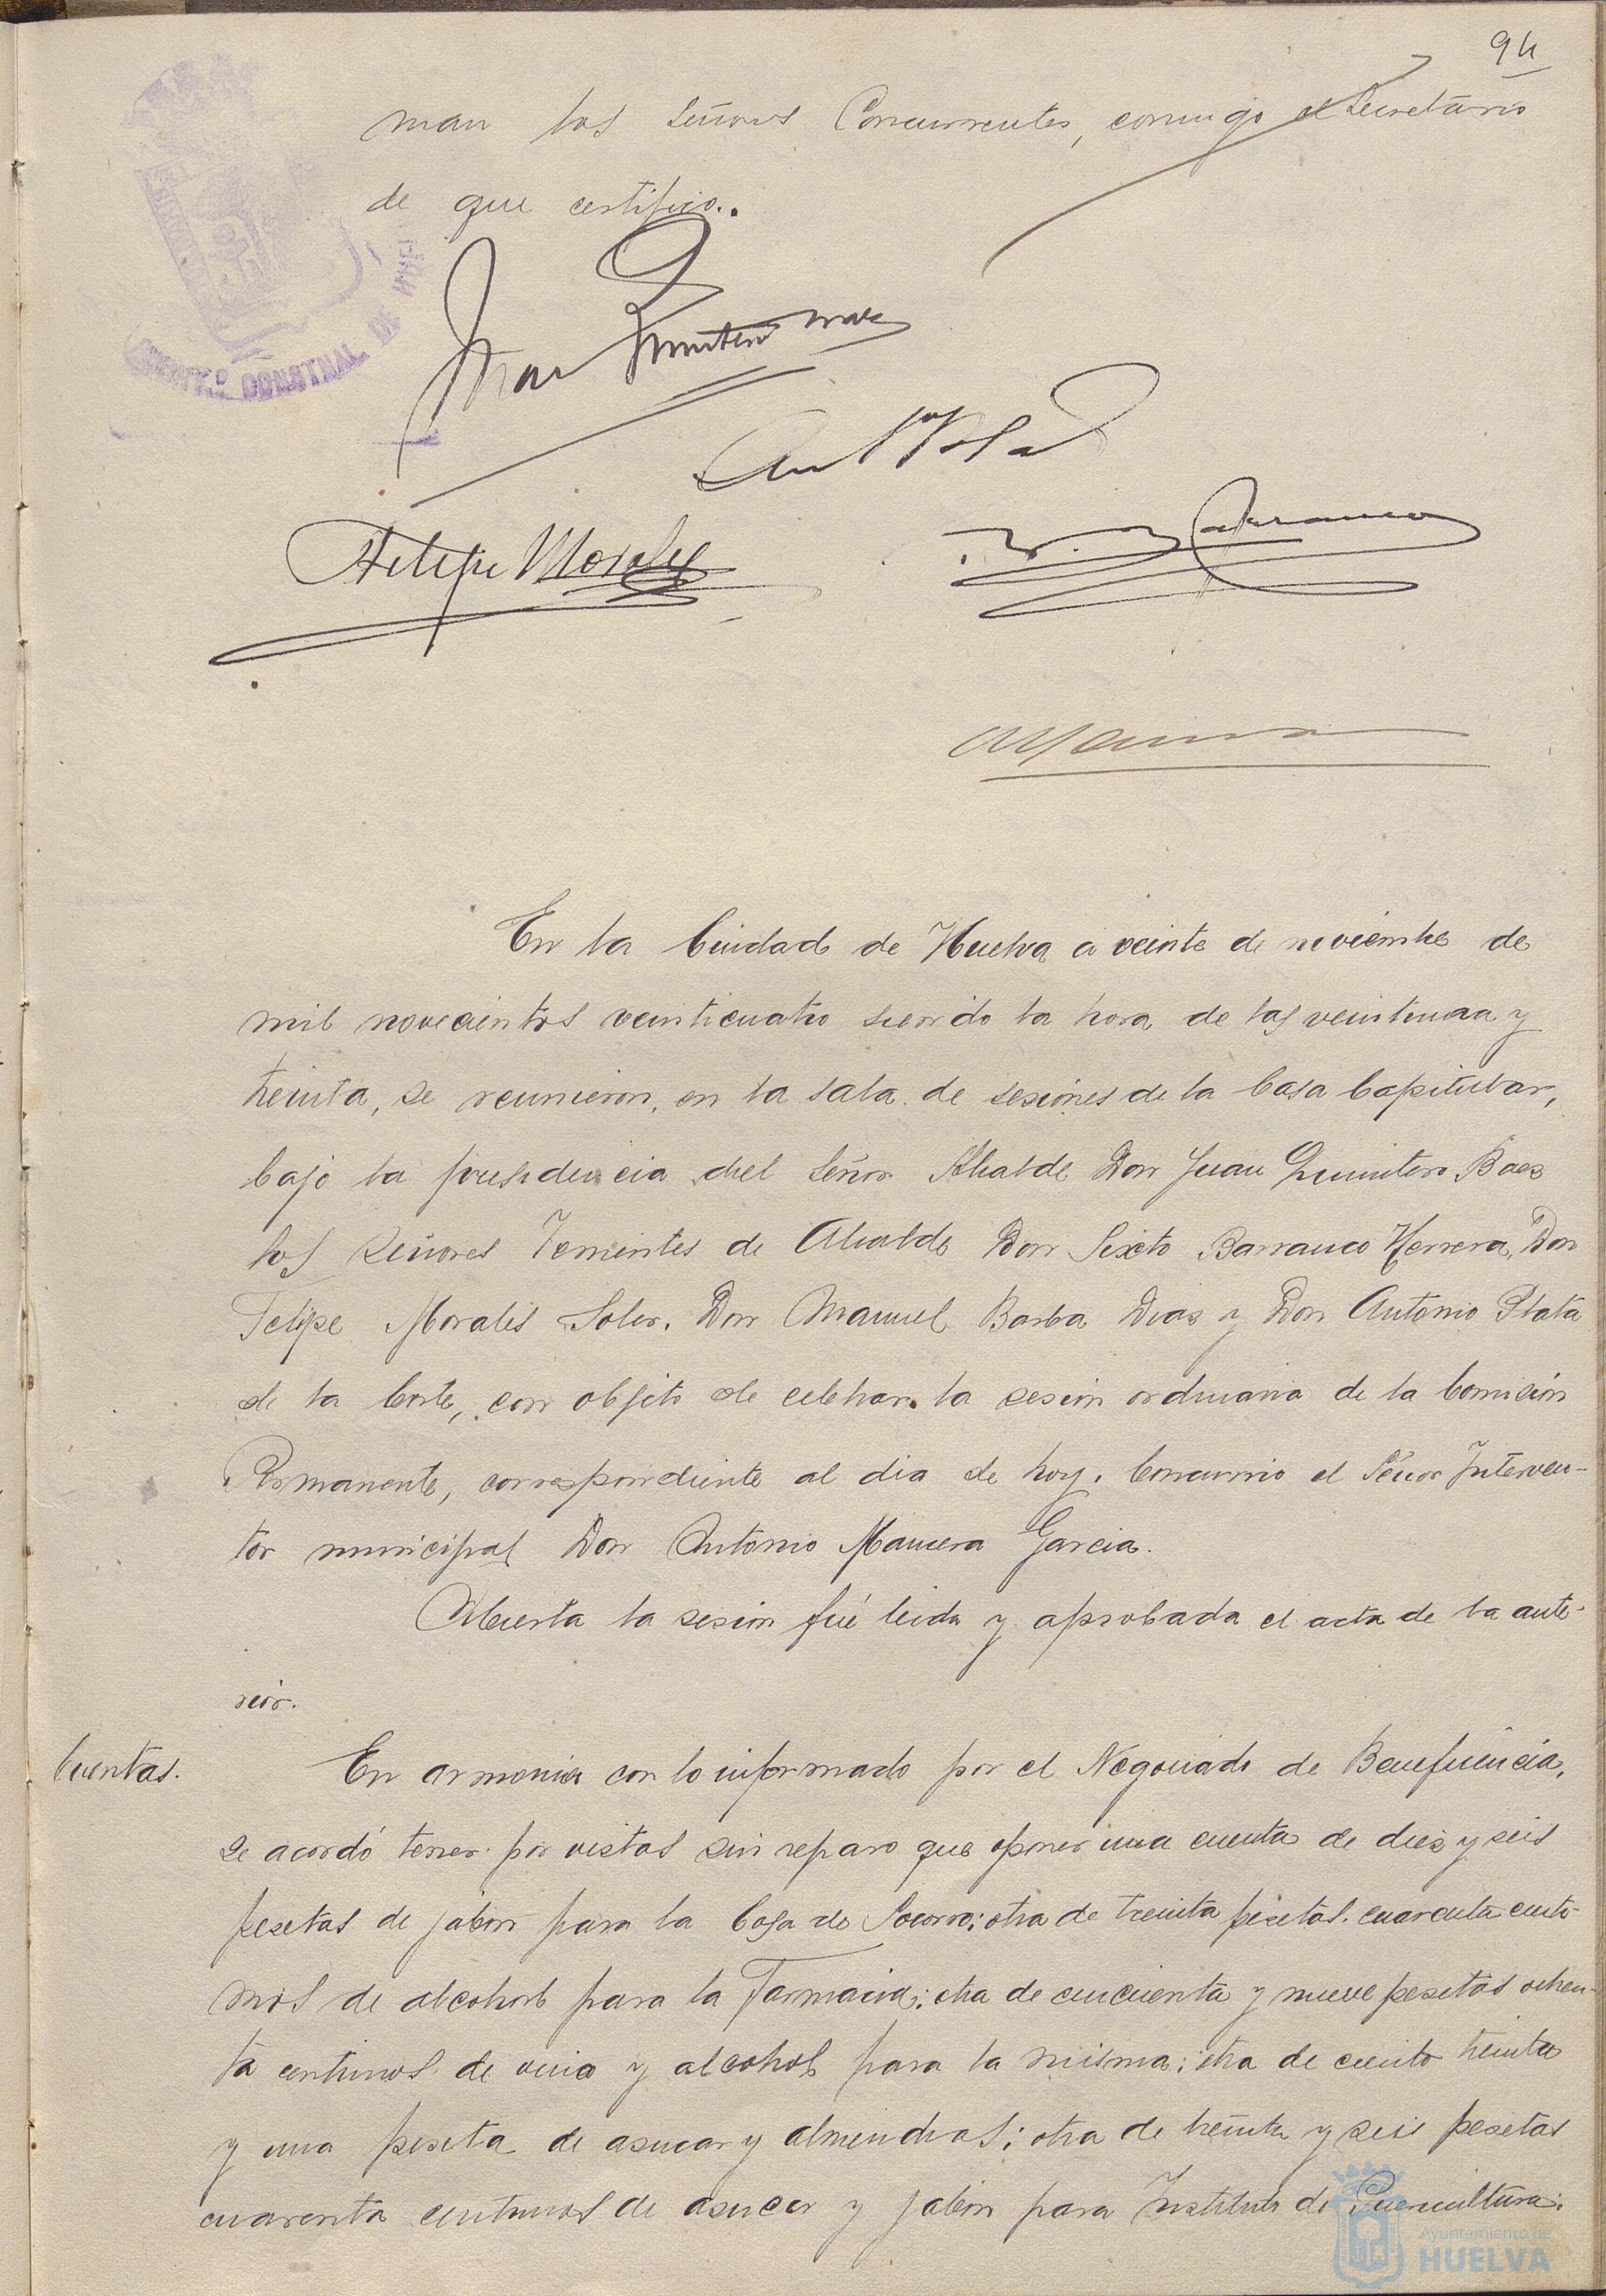 94
man los Señores Concurrentes, conmigo el Secretario
de que certifico.
AYUNT.º CONSTNAL DE
Juan Quintero
Ant Plata
Felipe Morales
S. Barranco
En la Ciudad de Huelva a veinte de noviembre de
mil novecientos veinticuatro siendo la hora de las veintiuna y
treinta, se reunieron, en la sala de sesiones de la Casa Capitular,
bajo la presidencia del Señor Alcalde Don Juan Quintero Baez
los Señores Tenientes de Alcalde Don Sixto Barranco Herrera, Don
Felipe Morales Soler, Don Manuel Barba Diaz y Don Antonio Plata
de la Corte, con objeto de celebrar la sesion ordinaria de la Comisión
Permanente, correspondiente al dia de hoy. Concurrio el Señor Interven-
tor municipal Don Antonio Mancera Garcia.
Abierta la sesion fué leida y aprobada el acta de la ante-
rior.
Cuentas.
En armonia con lo informado por el Negociado de Beneficencia,
se acordó tener por vistas sin reparo que oponer una cuenta de diez y seis
pesetas de jabon para la Casa de Socorro; otra de treinta pesetas cuarenta centi-
mos de alcohol para la Farmacia; otra de cincuenta y nueve pesetas ochen-
ta centimos de vino y alcohol para la misma; otra de ciento treinta
y una peseta de azucar y almendras; otra de treinta y seis pesetas
cuarenta centimos de azucar y jabon para Instituto de Puericultura;
Ayuntamiento de
HUELVA